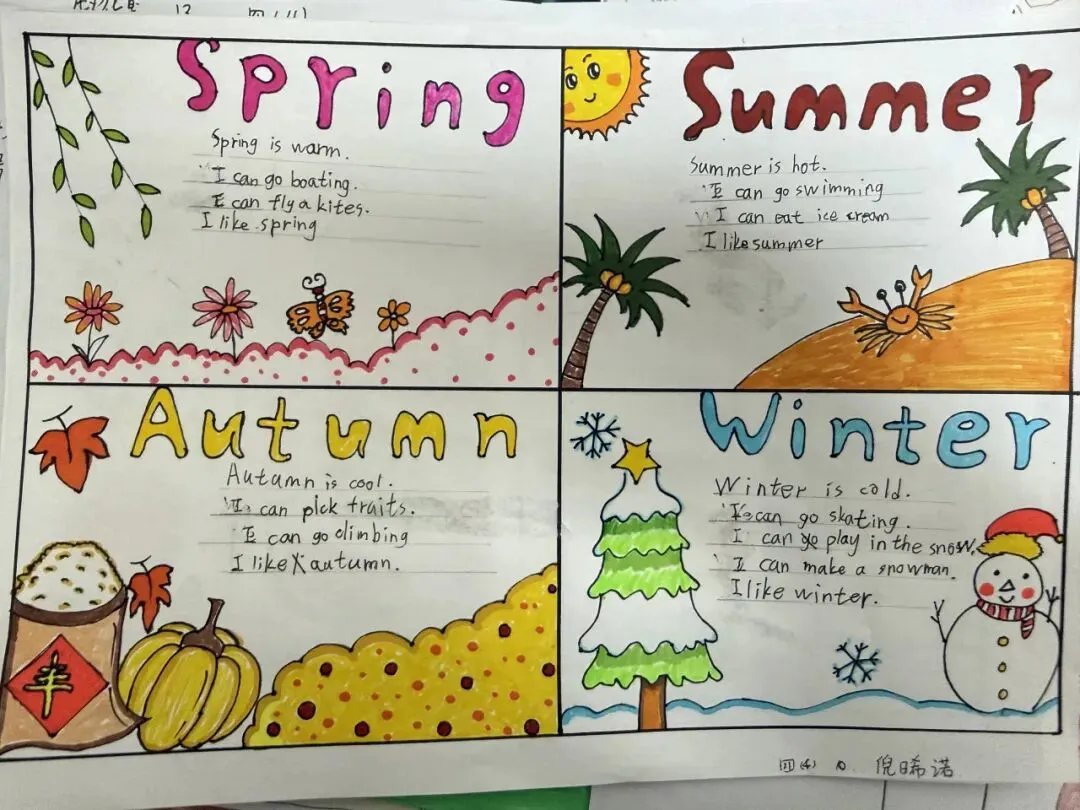 12
Spring
Spring is warm.
I can go boating.
I can fly a kites.
I like spring
Summer
Summer is hot.
I can go swimming
I can eat ice cream
I like summer
Autumn
Autumn is cool.
I can pick traits.
I can go climbing
I like autumn.
丰
Winter
Winter is cold.
I can go skating.
I can go play in the snow.
I can make a snowman.
I like winter.
四(4) 倪晞诺